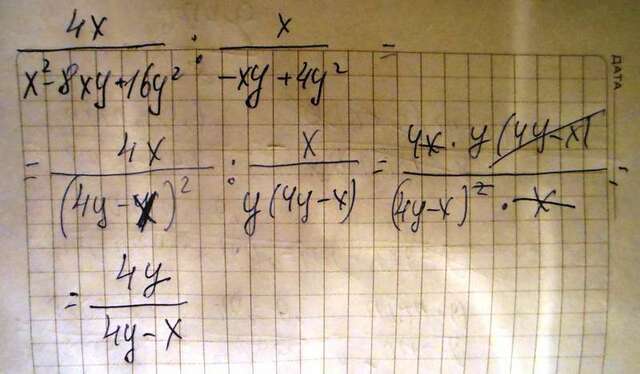 4x / (x² - 8xy + 16y²) : x / (-xy + 4y²) =
= 4x / (4y - x)² : x / (y(4y - x)) = 4x · y(4y - x) / ((4y - x)² · x) =
= 4y / (4y - x)
ДАТА